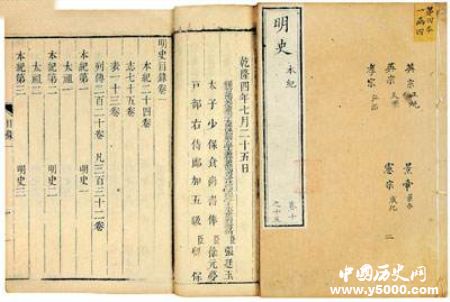 第四本
一函四
英宗
景帝
英宗
憲宗
孝宗
二
明史 本紀
卷十
之十五
乾隆四年七月二十五日
臣張廷玉
太子少保食尚書俸臣徐元夢
戶部右侍郎加五級臣留保
明史目錄卷一
本紀二十四卷
志七十五卷
表一十三卷
列傳二百二十卷 凡三百三十二卷
本紀第一 明史一
太祖一
本紀第二 明史二
太祖二
本紀第三 明史三
目錄一
中国历史网
www.y5000.com